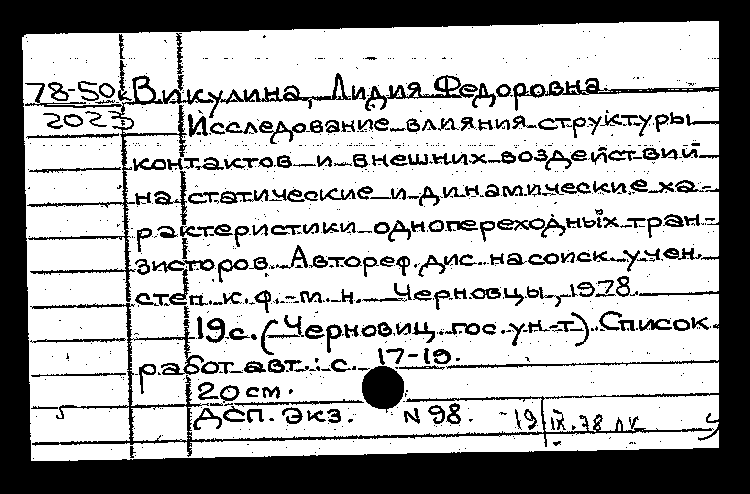 78-50к Викулина, Лидия Федоровна.
2023 Исследование влияния структуры
контактов и внешних воздействий
на статические и динамические ха-
рактеристики однопереходных тран-
зисторов. Автореф. дис. на соиск. учен.
степ. к. ф.-м. н. Черновцы, 1978.
19 с. (Черновиц. гос. ун-т). Список
работ авт.: с. 17-19.
20 см.
ДСП. Экз. N 98. 19/IX.78